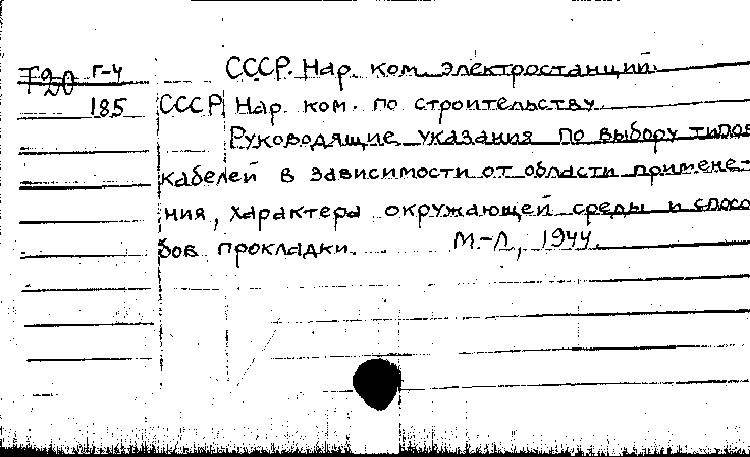 Г-4 СССР. Нар. ком. электростанций.
185 СССР Нар. ком. по строительству.
Руководящие указания по выбору типов
кабелей в зависимости от области примене-
ния, характера окружающей среды и спосо
бов прокладки. М.-Л, 1944.